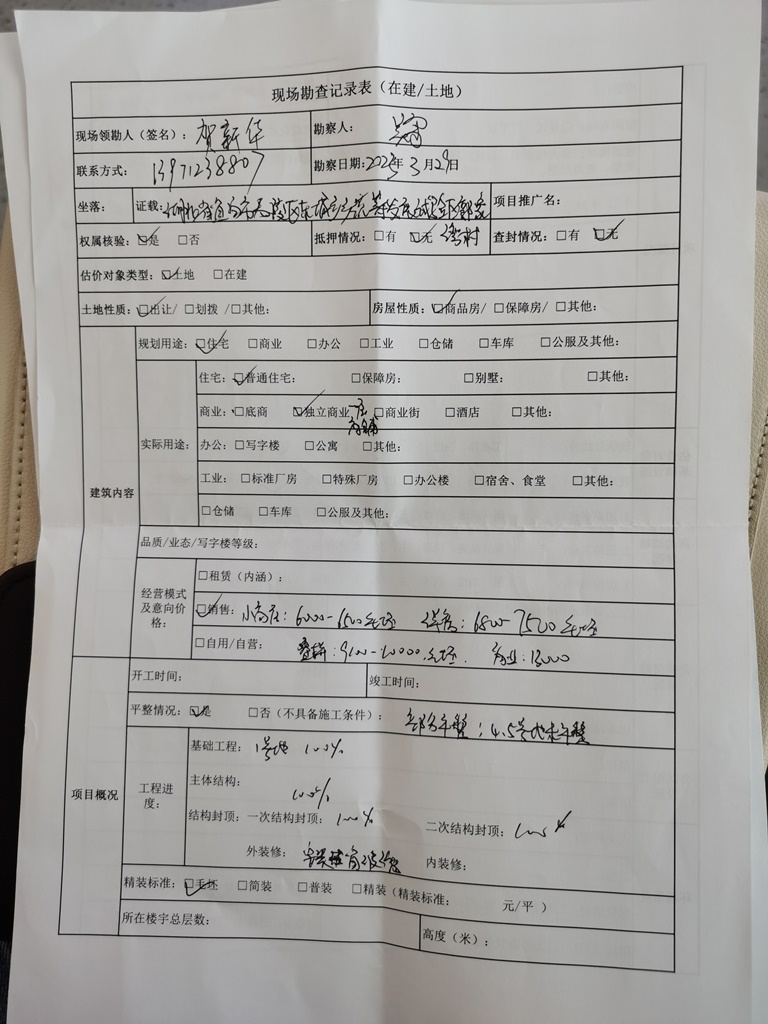 现场勘查记录表（在建/土地）
现场领勘人（签名）：贺新华 勘察人：
联系方式：13971238807 勘察日期:2023年3月29日
坐落： 证载： 项目推广名：
权属核验：☑是 □否 抵押情况：□有 ☑无 查封情况：□有 ☑无
估价对象类型：☑土地 □在建
土地性质：☑出让/ □划拨 /□其他： 房屋性质：☑商品房/ □保障房/ □其他：
建筑内容
规划用途：☑住宅 □商业 □办公 □工业 □仓储 □车库 □公服及其他：
实际用途：
住宅：☑普通住宅： □保障房： □别墅： □其他：
商业：□底商 ☑独立商业 □商业街 □酒店 □其他：
商铺
办公：□写字楼 □公寓 □其他：
工业： □标准厂房 □特殊厂房 □办公楼 □宿舍、食堂 □其他：
□仓储 □车库 □公服及其他：
品质/业态/写字楼等级：
经营模式及意向价格：
□租赁（内涵）：
☑销售：小高层：6000-6500毛坯 洋房：6800-7500毛坯
□自用/自营： 叠拼：9500-10000毛坯. 商业：13000
项目概况
开工时间： 竣工时间：
平整情况：☑是 □否（不具备施工条件）：部分平整；4.5号地未平整
工程进度：
基础工程：1号地 100%
主体结构：100%
结构封顶：一次结构封顶：100% 二次结构封顶：100%
外装修： 内装修：
精装标准：☑毛坯 □简装 □普装 □精装（精装标准： 元/平 ）
所在楼宇总层数： 高度（米）：